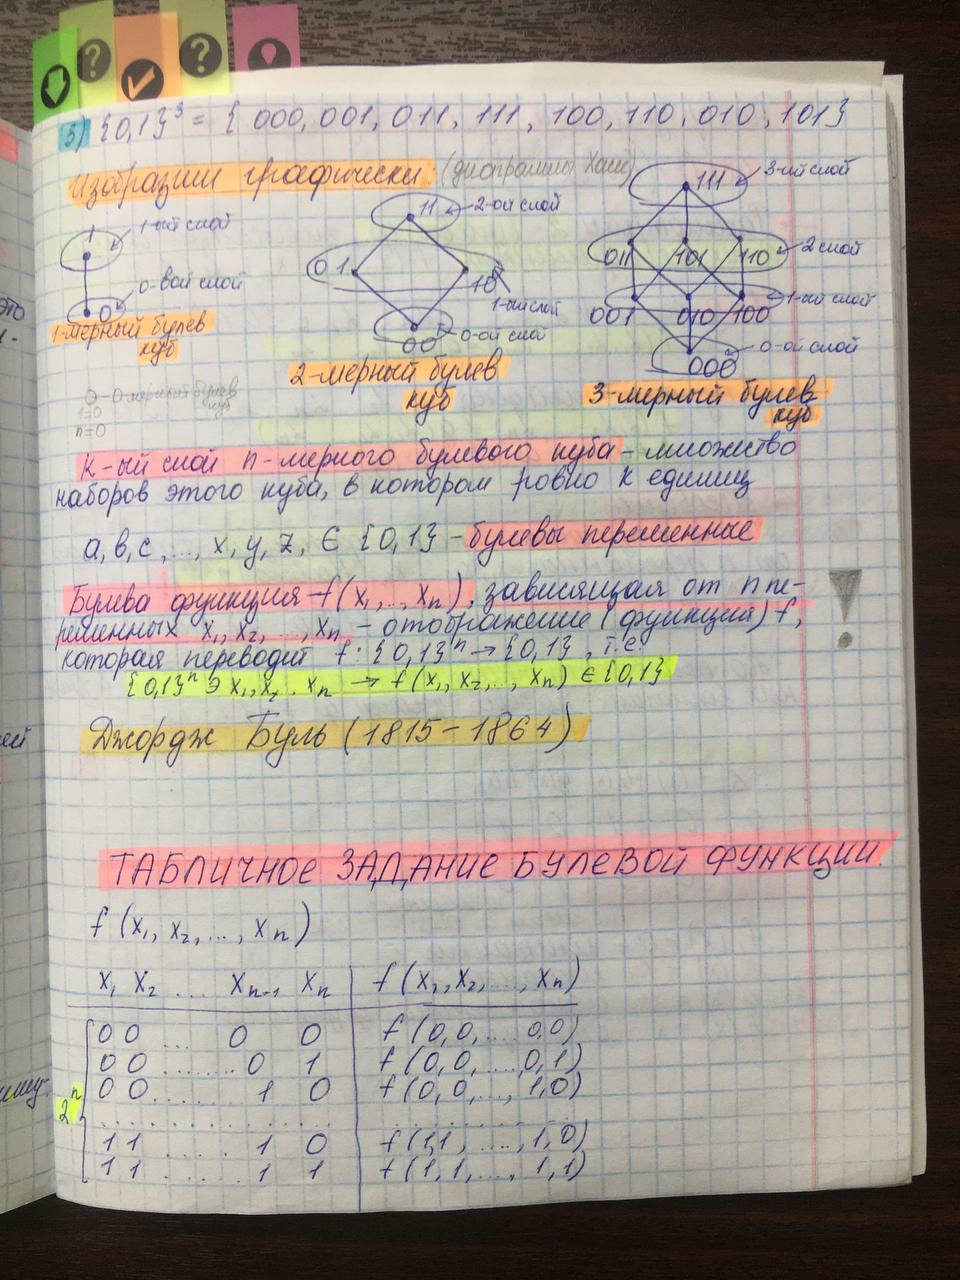 3) {0,1}³ = { 000, 001, 011, 111, 100, 110, 010, 101}
Изобразим графически: (диаграммы Хассе)
1
1-ый слой
0-вой слой
0
1-мерный булев
куб
11
2-ой слой
01
10
1-ый слой
00
0-ой слой
2-мерный булев
куб
111
3-ий слой
011 101 110
2 слой
1-ый слой
001 010 100
0-ой слой
000
3-мерный булев
куб
0-мерный булев
куб
n=0
К-ый слой n-мерного булевого куба - множество
наборов этого куба, в котором ровно к единиц
а, в, с, ..., x, y, z, ∈ {0,1} - булевы переменные
Булева функция f(x₁,..., xₙ), зависящая от n пе-
ременных x₁, x₂, ..., xₙ - отображение (функция) f,
которая переводит f: {0,1}ⁿ → {0,1}, т.е.
{0,1}ⁿ ∋ x₁, x₂ ... xₙ → f(x₁, x₂, ..., xₙ) ∈ {0,1}
Джордж Буль (1815-1864)
ТАБЛИЧНОЕ ЗАДАНИЕ БУЛЕВОЙ ФУНКЦИИ.
f (x₁, x₂, ..., xₙ)
x₁ x₂ ... xₙ₋₁ xₙ f(x₁, x₂, ..., xₙ)
0 0 .... 0 0 f (0,0, .... 0,0)
0 0 ........ 0 1 f (0,0, ..... 0,1)
0 0 ....... 1 0 f (0,0, ..., 1,0)
2ⁿ
1 1 ..... 1 0 f(1,1, ...., 1,0)
1 1 ....... 1 1 f(1,1, ..., 1,1)